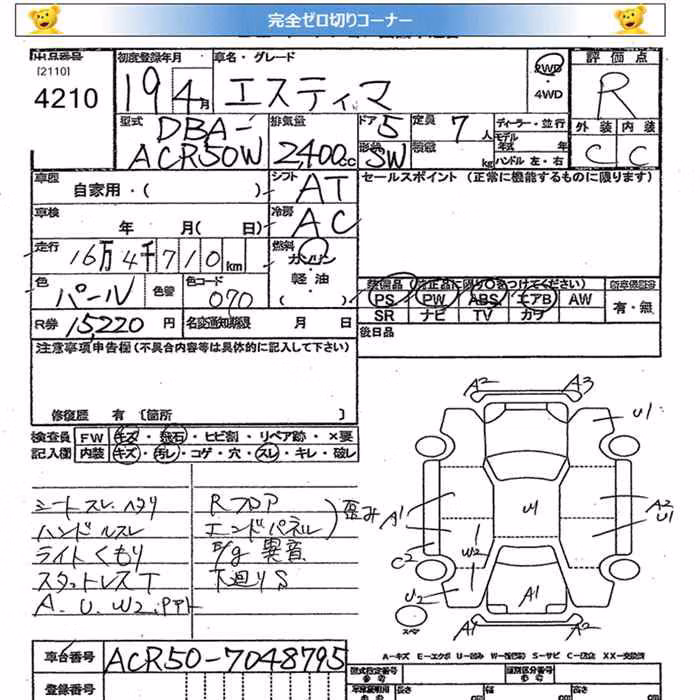 完全ゼロ切りコーナー
出品番号 初度登録年月 車名・グレード 評価点
[2110]
4210 19 4月 エスティマ 2WD・4WD R
型式 DBA-ACR50W 排気量 2,400cc ドア 5 形状 SW 定員 7人 積載 kg ディーラー・並行 モデル年式 年 ハンドル 左・右 外装 C 内装 C
車歴 自家用・( ) シフト AT セールスポイント (正常に機能するものに限ります)
車検 年 月( 日) 冷房 AC
走行 16万4千710km 燃料 ガソリン・軽油・( )
色 パール 色替 カラーコード 070 装備品 新車保証書
PS PW ABS エアB AW 有・無
SR ナビ TV カワ
R券 15,220円 名変通知期限 月 日 後日品
注意事項申告欄 (不具合内容等は具体的に記入して下さい)
修復歴 有 〔箇所 〕
検査員 FW キズ・飛石・ヒビ割・リペア跡・×要
記入欄 内装 キズ・汚レ・コゲ・穴・スレ・キレ・破レ
シートスレ、ヘタリ Rフロア
ハンドルスレ エンドパネル 歪み
ライトくもり E/g 異音
スタットレスT 下廻りS
A、U、W2、PPト
A2 A3
U1
A1 U1 A2
U1
C2 W2
U2 A1
スペア A1 A2
A-キズ E-エクボ U-凹み W-(波)
S-サビ C-腐食 XX-交換済
車台番号 ACR50-7048795 型式指定番号 類別区分番号
登録番号 長さ cm 幅 cm 高さ cm